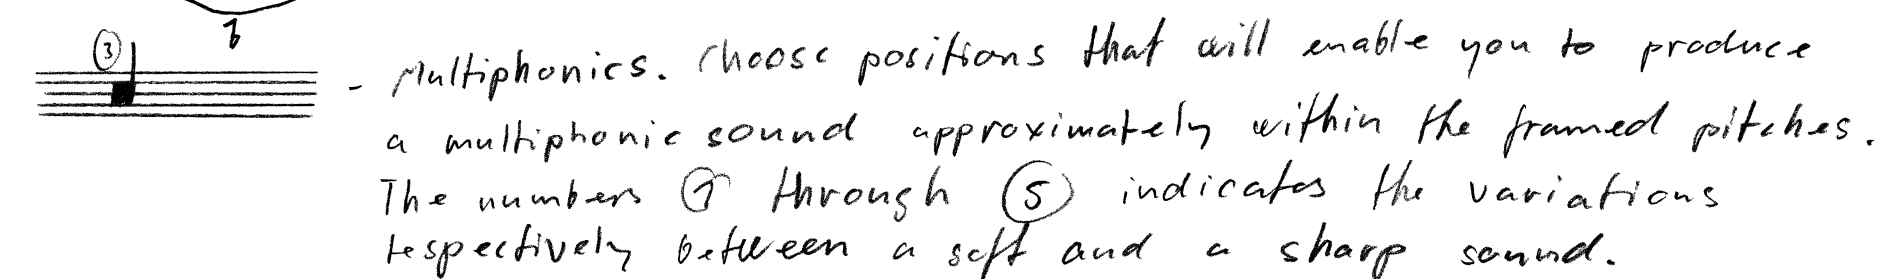 ③
- Multiphonics. Choose positions that will enable you to produce
a multiphonic sound approximately within the framed pitches.
The numbers ① through ⑤ indicates the variations
respectively between a soft and a sharp sound.